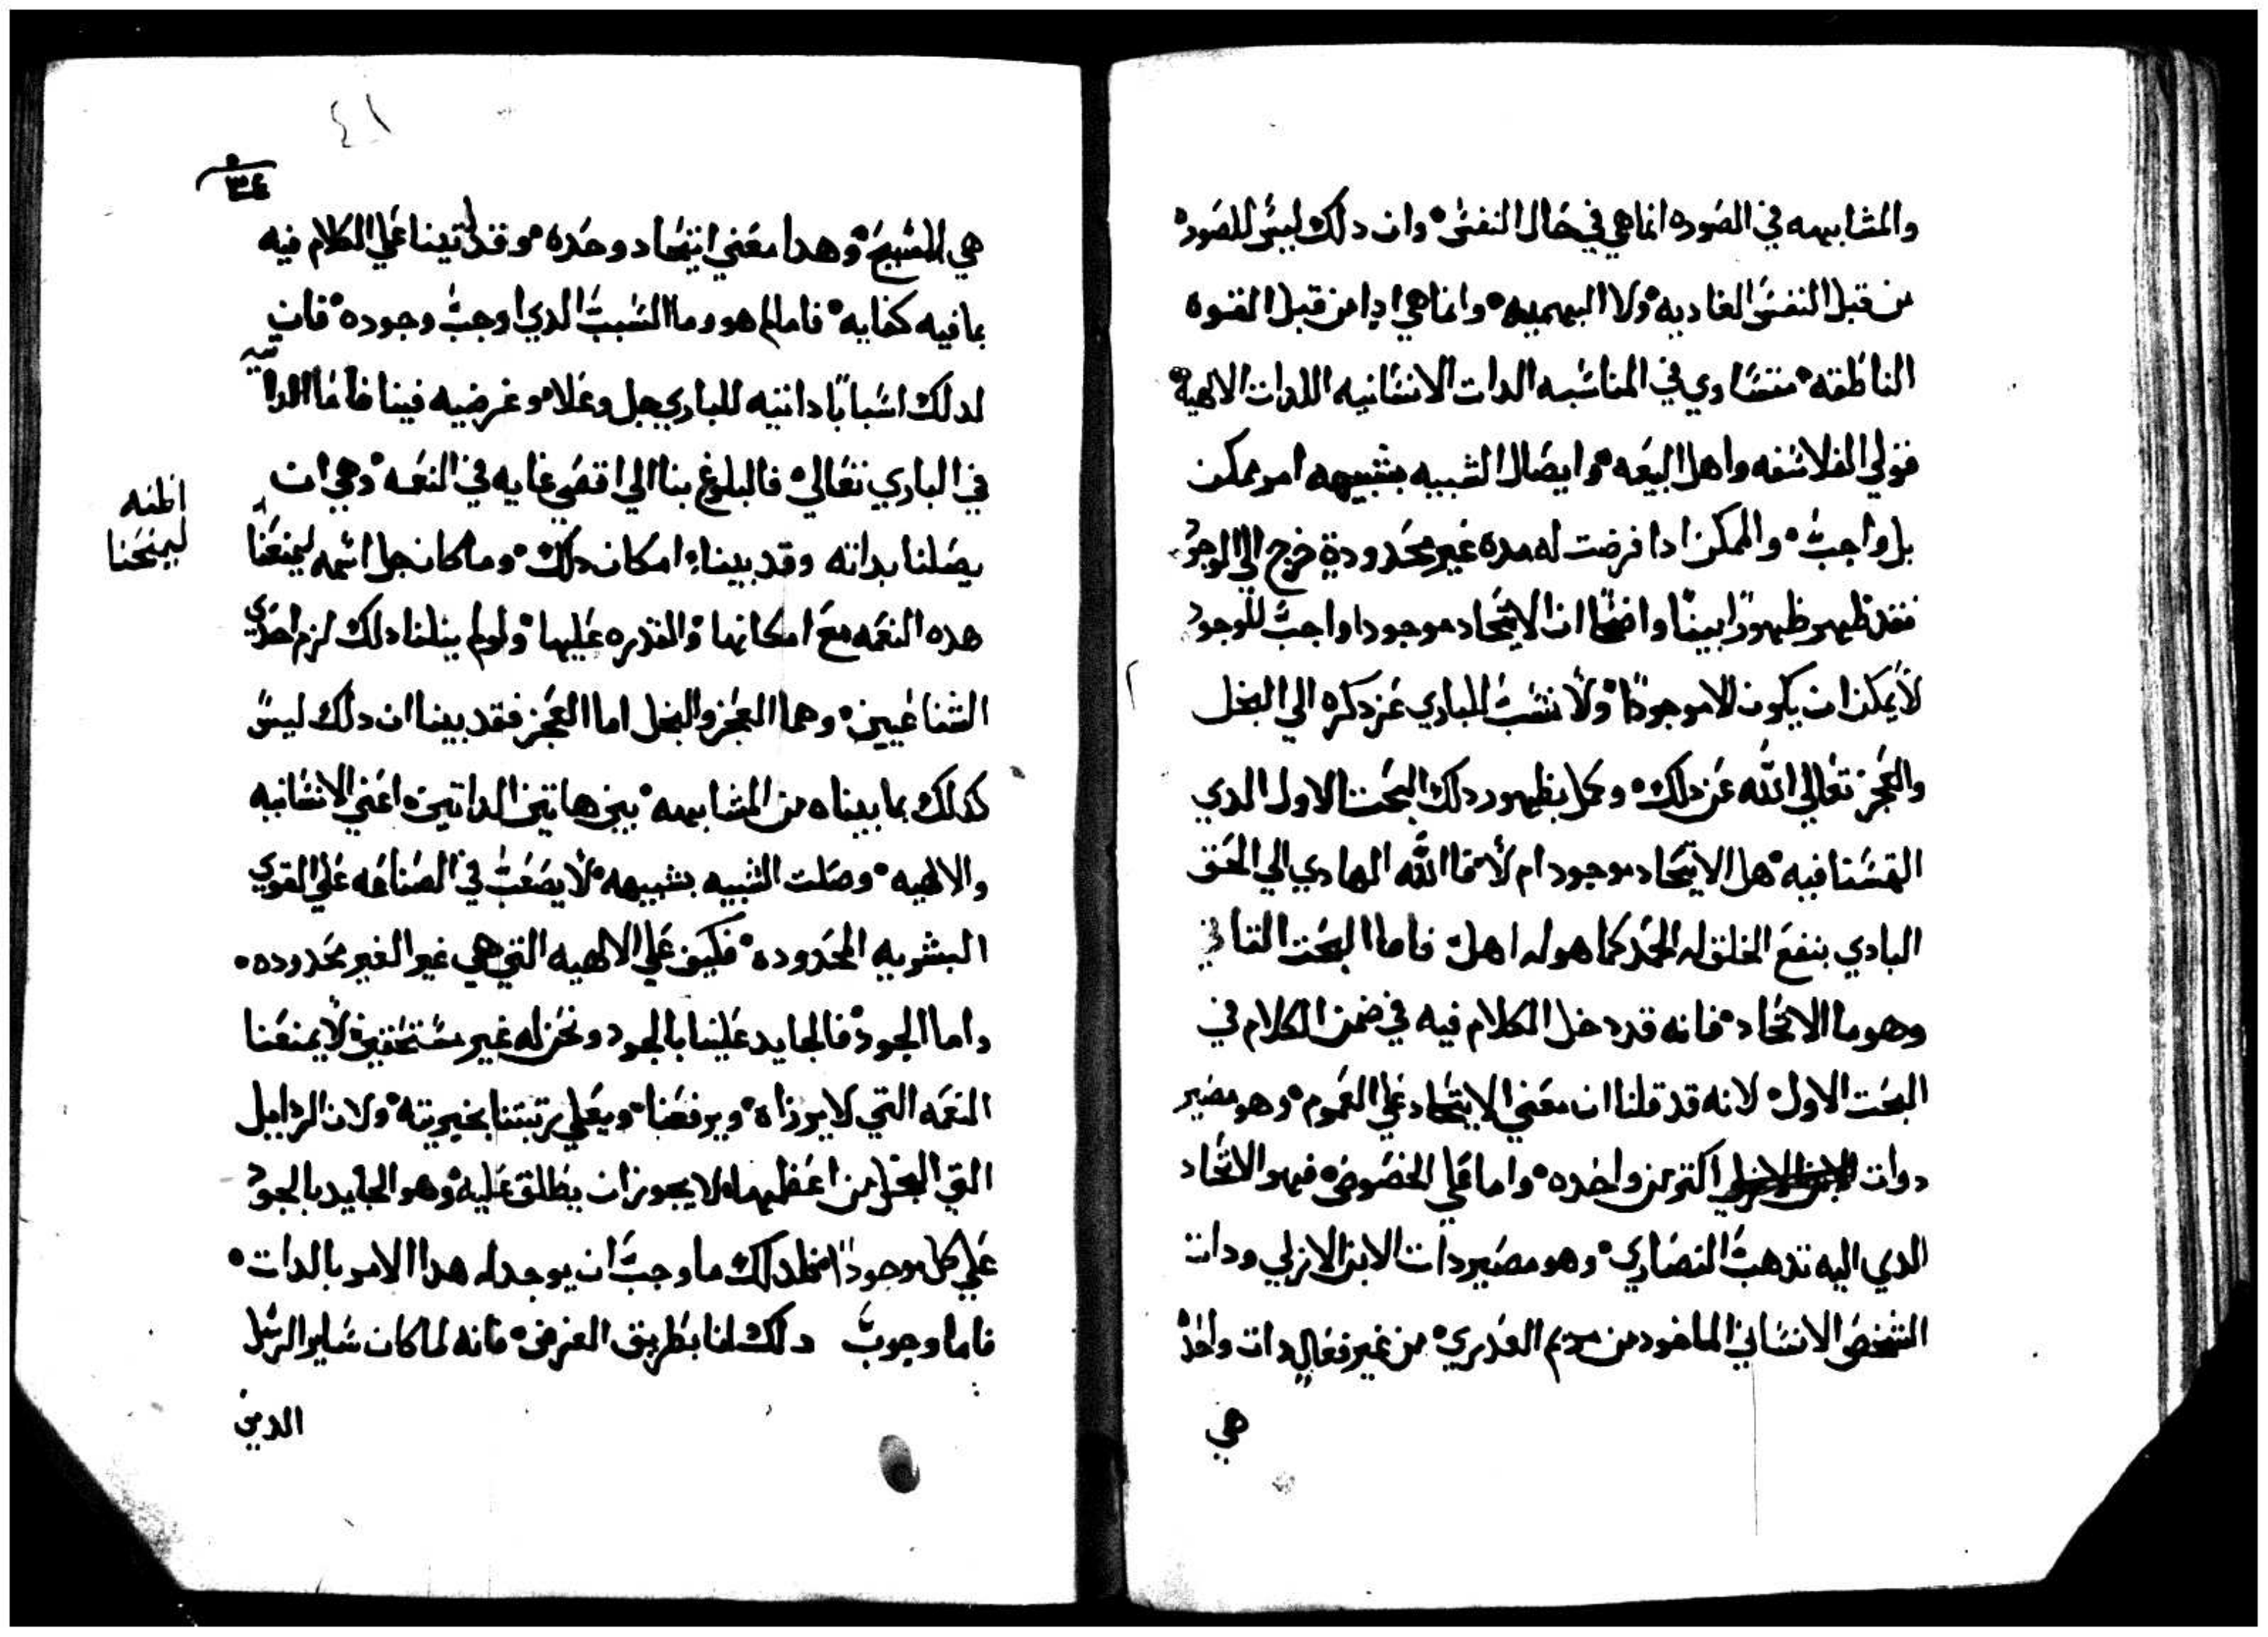 والمشابهه في الصوره انما هي في حال النفس وان دلك ليس للصوره
من قبل النفس الغاديه ولا البهيميه وانما هي ادا من قبل القوه
الناطقه متساوي في المناسبه الدات الانسانيه اللدات الالهية
قولي الفلاسفه واهل البيعه وايصال الشبيه بشبيهه امر ممكن
بل واجب والممكن ادا فرضت له مده غير محدودة خرج الي الوجود
فقد ظهر ظهورًا بينًا واضحًا ان الاتحاد موجودا واجب الوجود
لا يمكن ان يكون الا موجودًا ولا ننسب للباري عز دكره الي البخل
والعجز تعالي الله عن دلك وكمل بظهور دلك البحت الاول الدي
التمسنا فيه هل الاتحاد موجود ام لا فاالله الهادي الي الحق
البادي بنفع الخلق له الحمد كما هو له اهل فاما البحت التاني
وهو ما الاتحاد فانه قد دخل الكلام فيه في ضمن الكلام في
البحت الاول لانه قد قلنا ان معني الاتحاد علي العموم وهو مصير
دوات اكتر من واحده واما علي الخصوص فهو الاتحاد
الدي اليه تدهب النصاري وهو مصير دات الابن الازلي ودات
الشخص الانساني الماخود من مريم العدري من غير فعال دات واحدة
هي
٣٤
هي المسيح وهدا معني اتحاد وحده وقد اتينا علي الكلام فيه
بما فيه كفايه فاما لم هو وما السبب الدي اوجب وجوده فان
لدلك اسبابًا داتيه للباري جل وعلا وعرضيه فينا فاما الداتيه
في الباري تعالي فالبلوغ بنا الي اقصي غايه في النعمه وهي ان
يصلنا بداته وقد بينا امكان دلك وما كان جل اسمه ليمنعنا
اظنه
ليمنحنا
هده النعمه مع امكانها والقدره عليها ولو لم ينلنا دلك لزم احدي
الشناعيين وهما العجز والبخل اما العجز فقد بينا ان دلك ليس
كدلك بما بيناه من المشابهه بين هاتين الداتين اعني الانسانيه
والالهيه وصلت الشبيه بشبيهه لا يصعب في الصناعه علي القوي
البشريه المحدوده فكيف علي الالهيه التي هي غير الغير محدوده
واما الجود فالجايد علينا بالجود ونحن له غير مستحقين لا يمنعنا
النعمه التي لا يرزاه ويرفعنا ويعلي رتبتنا بخيريته ولان الردايل
التي البخل من اعظمها لا يجوز ان يطلق عليه وهو الجايد بالجود
علي كل موجود فلدلك ما وجب ان يوجد له هدا الامر بالدات
فاما وجوب دلك لنا بطريق العرض فانه لما كان ساير الرسل
الدين